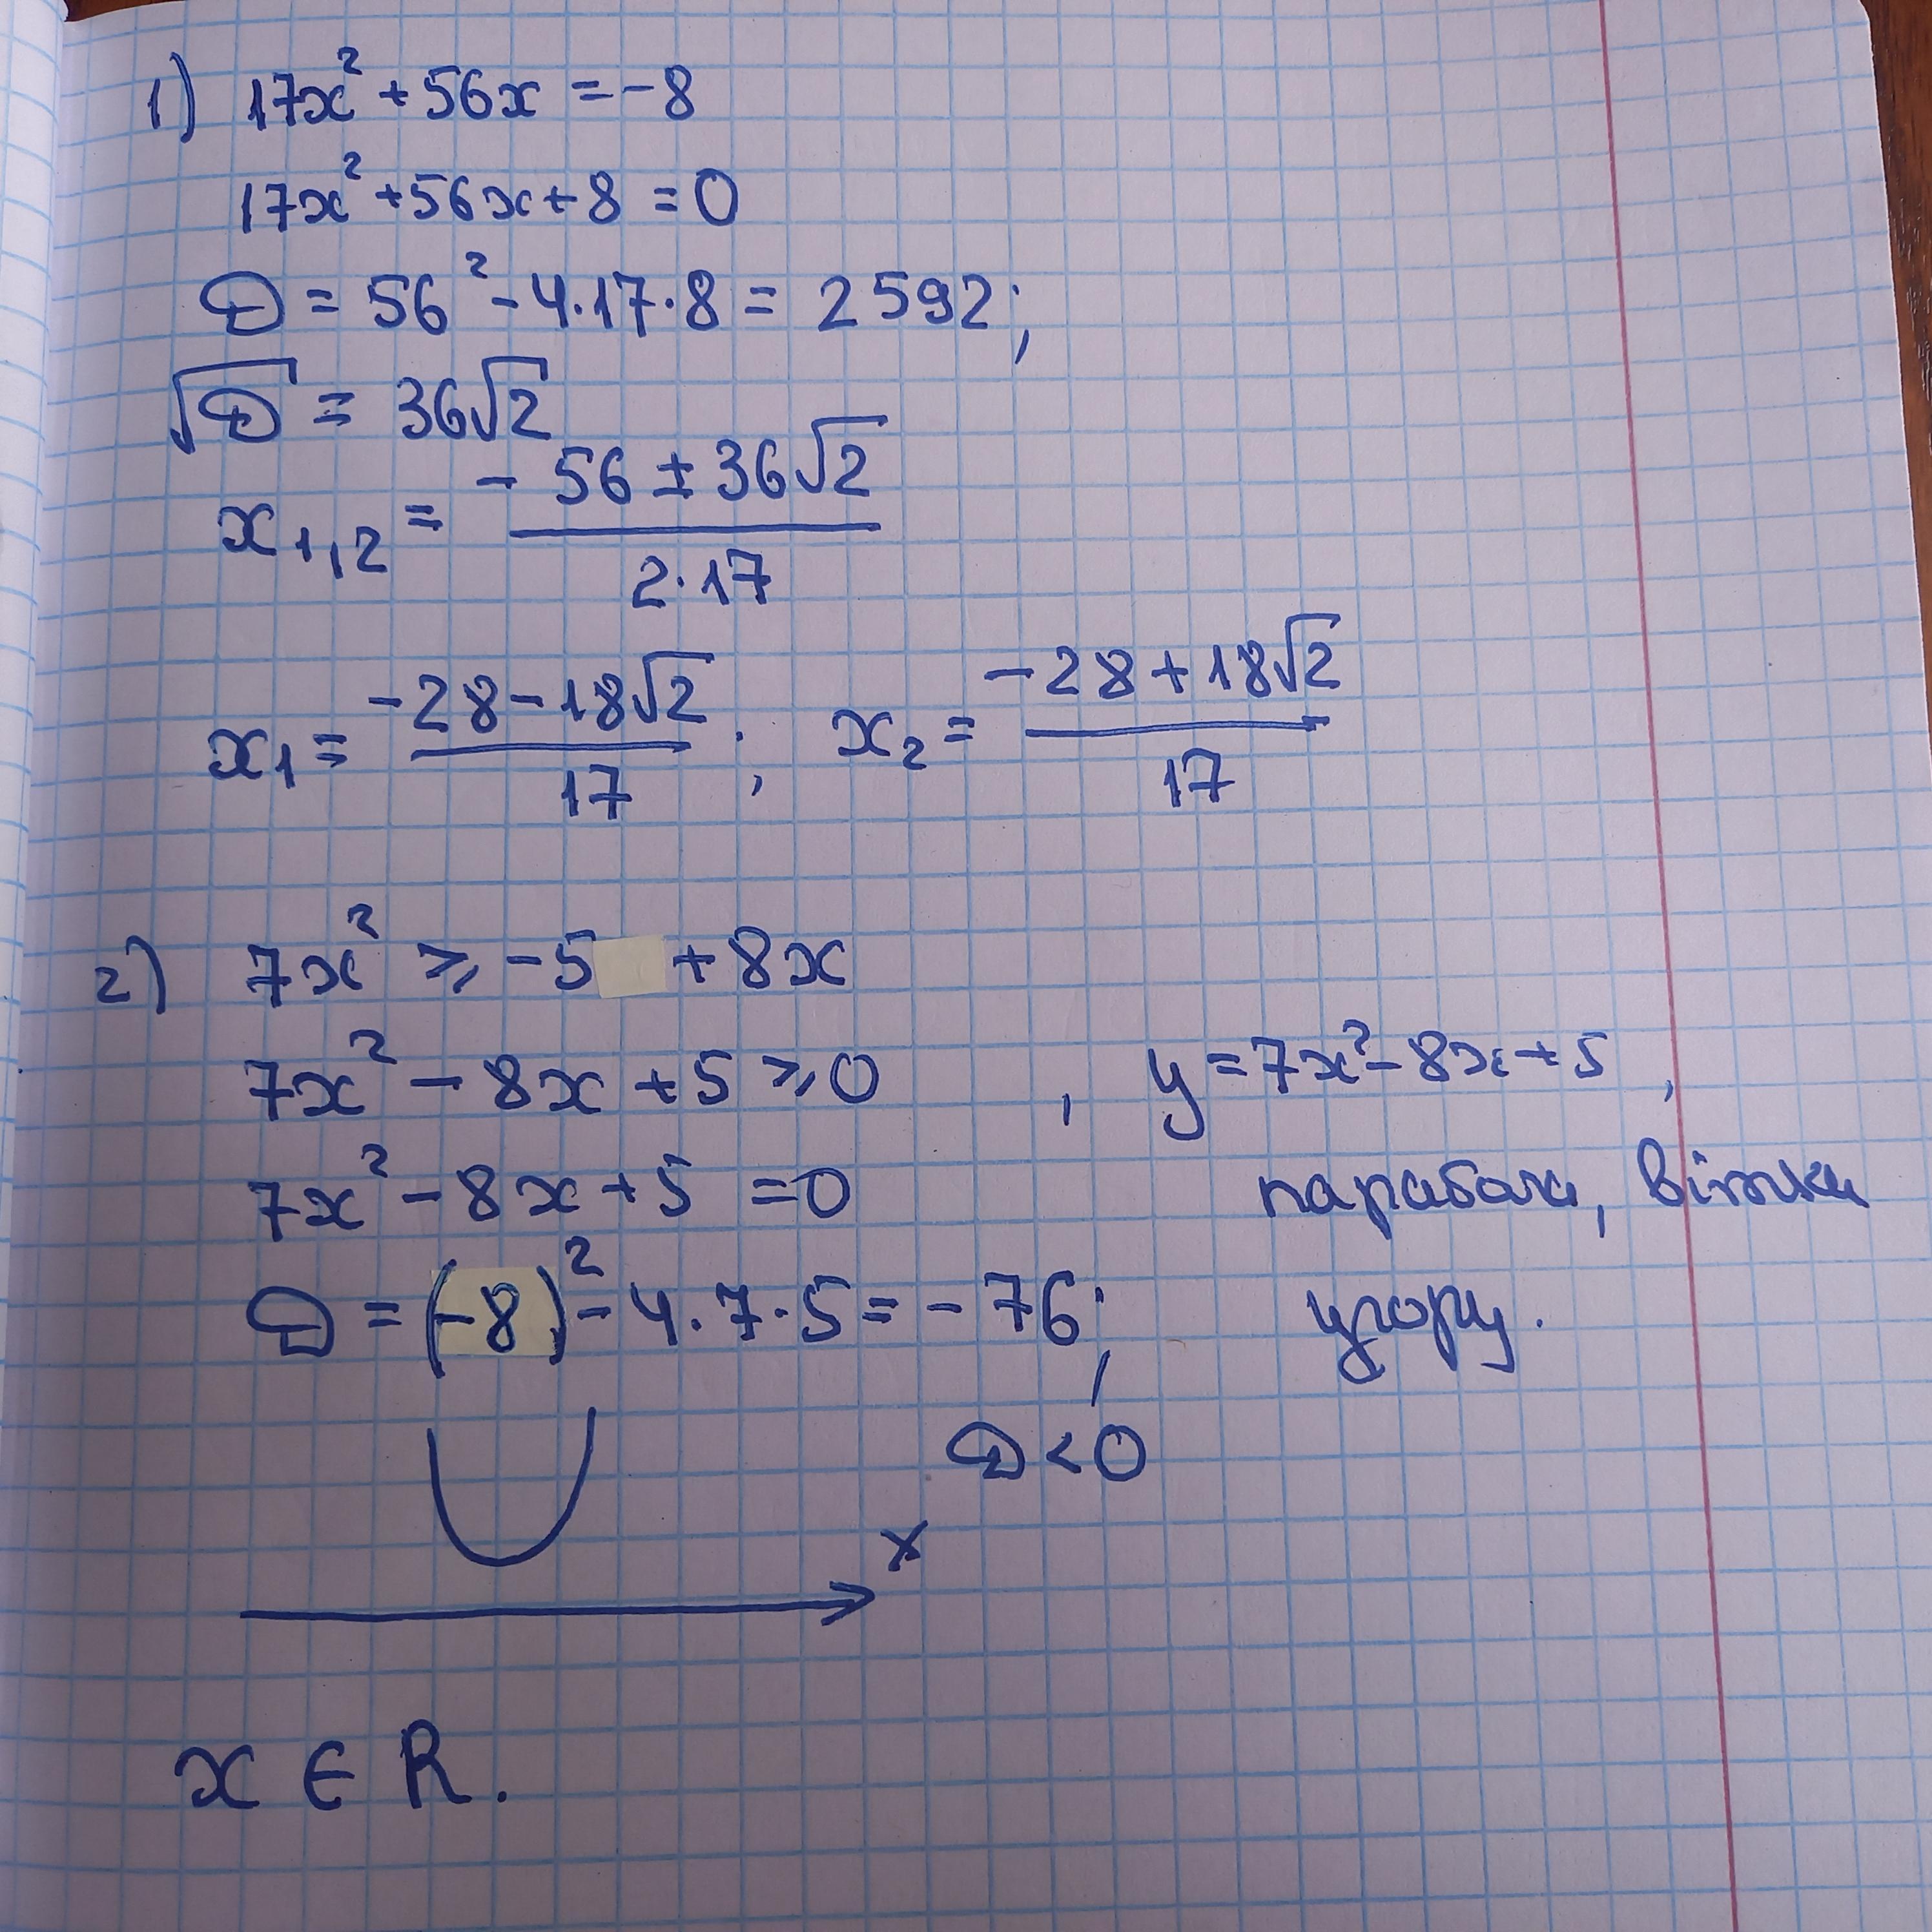 1) 17x² + 56x = -8
17x² + 56x + 8 = 0
D = 56² - 4·17·8 = 2592;
√D = 36√2
x₁,₂ = (- 56 ± 36√2) / (2·17)
x₁ = (-28 - 18√2) / 17 ; x₂ = (-28 + 18√2) / 17
2) 7x² ⩾ -5 + 8x
7x² - 8x + 5 ⩾ 0 , y = 7x² - 8x + 5 ,
7x² - 8x + 5 = 0 парабола, вітки
D = (-8)² - 4·7·5 = - 76; угору.
D < 0
x
x ∈ R.